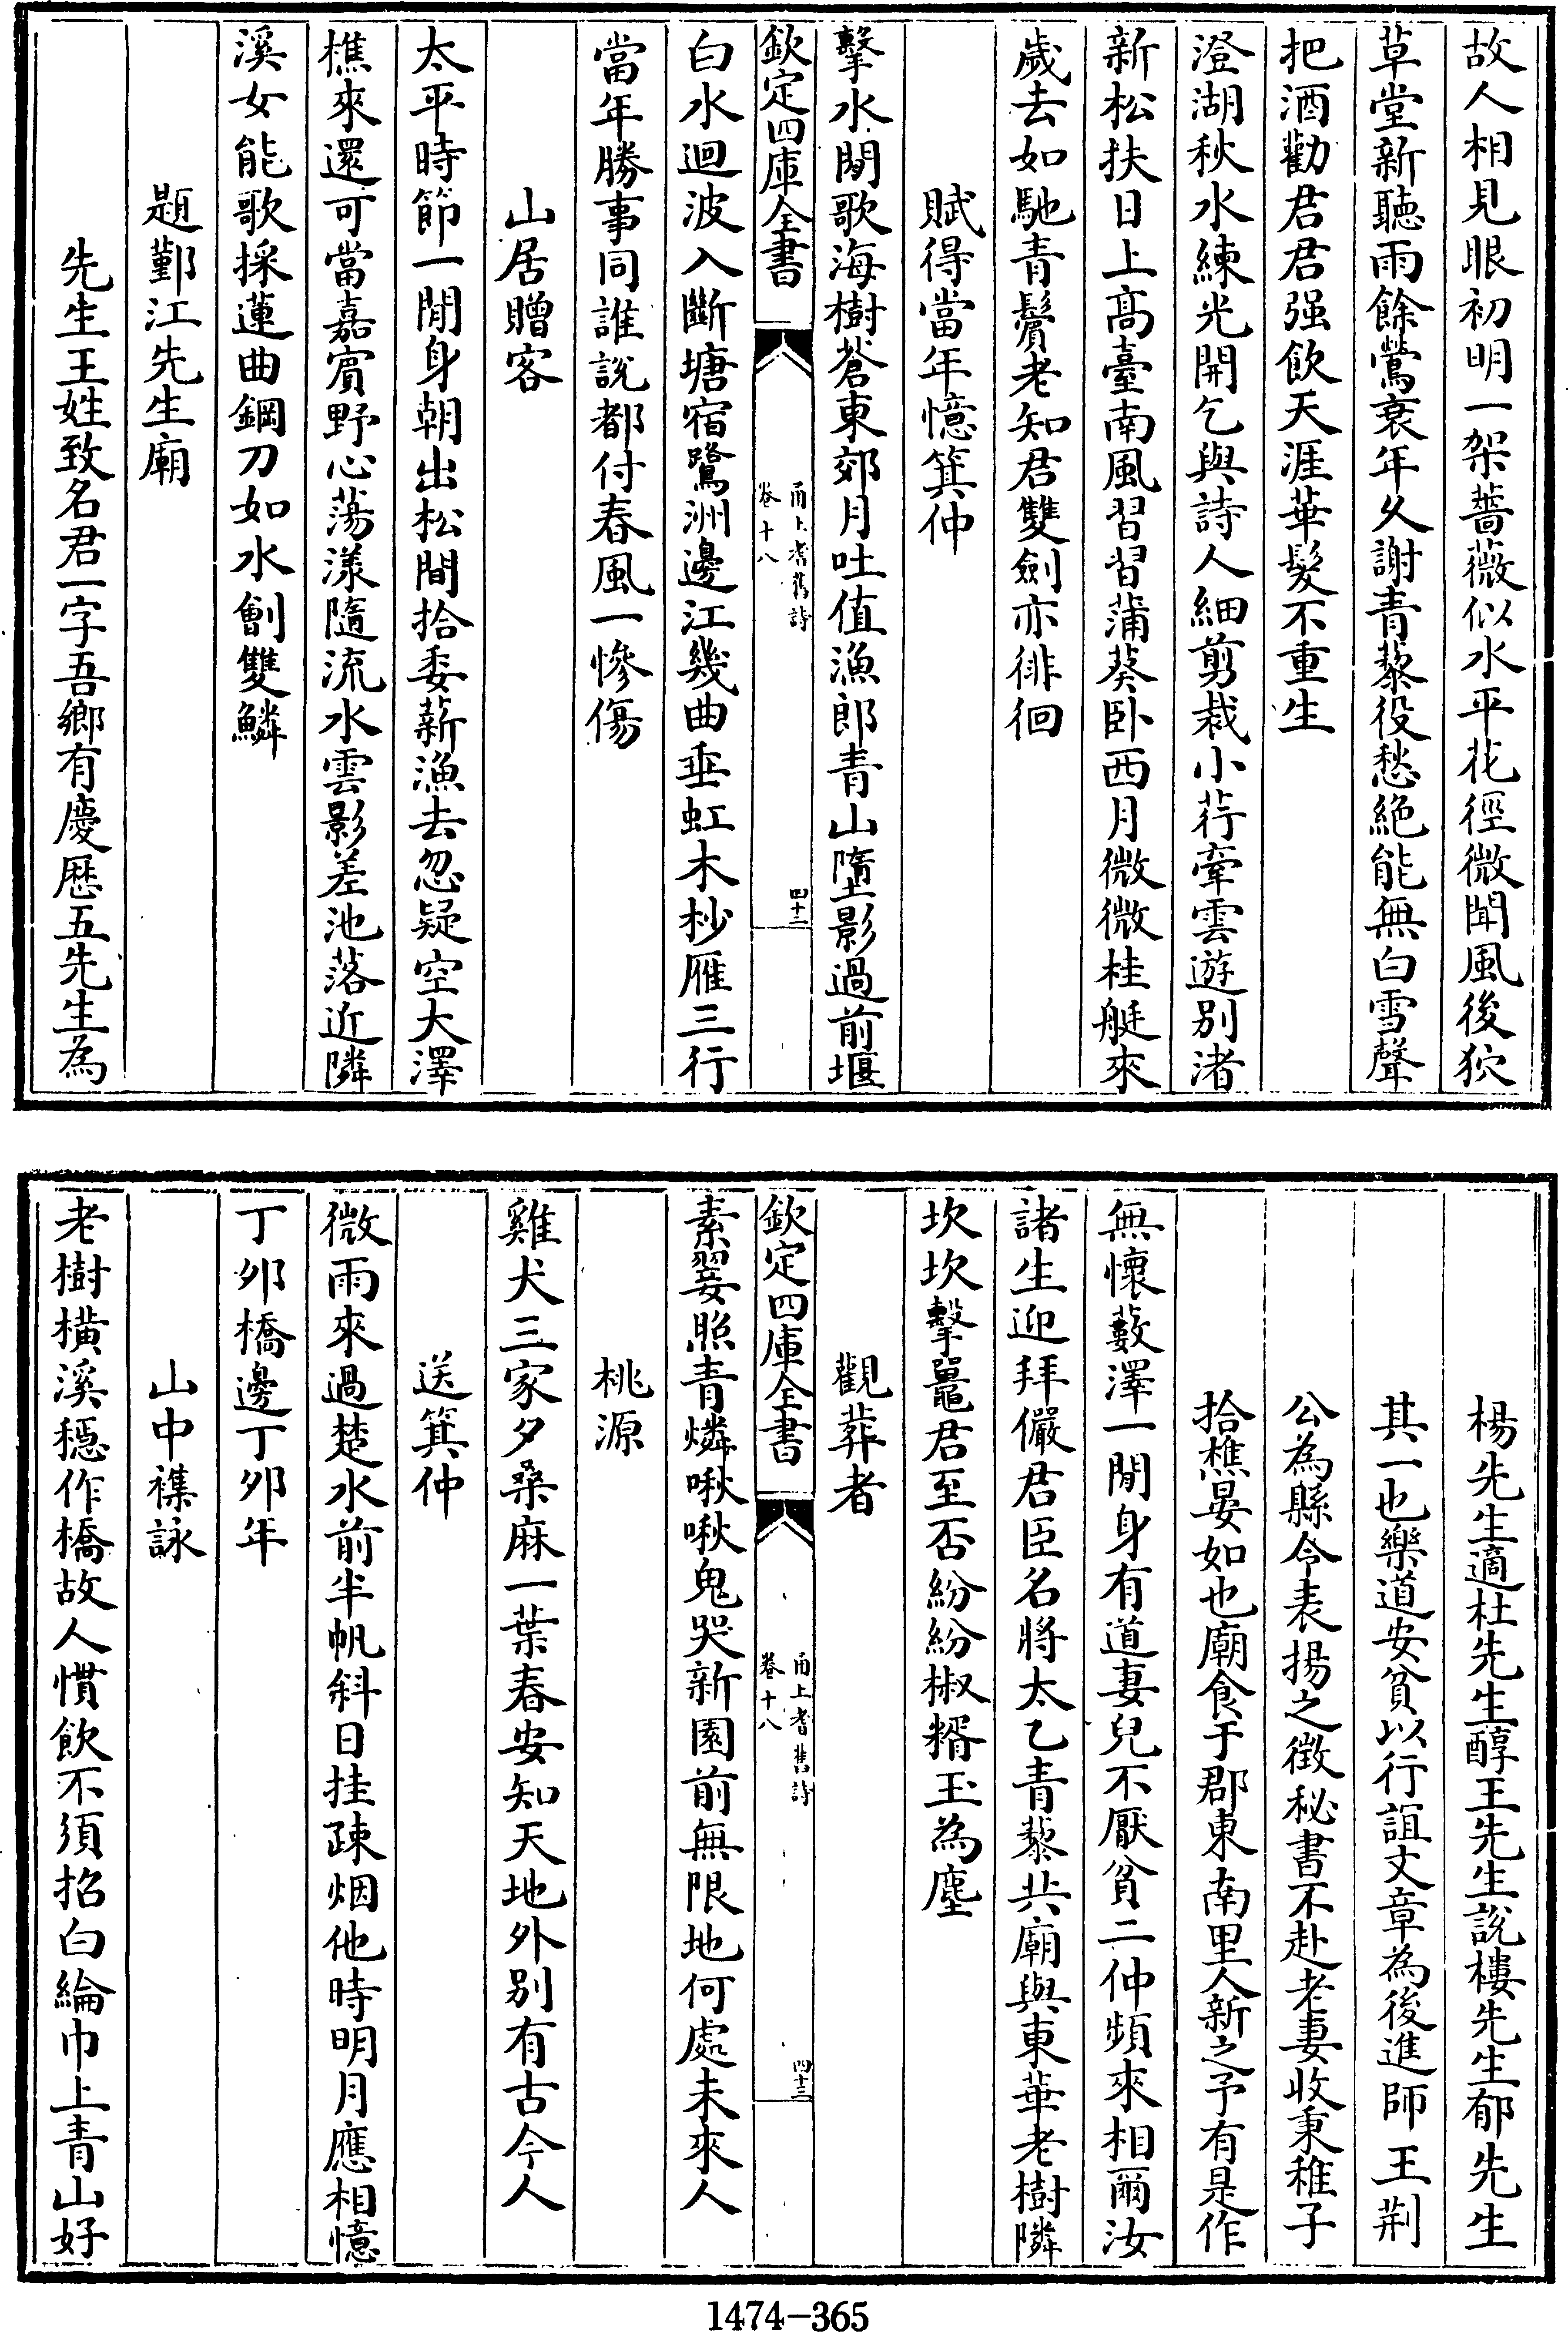 故人相見眼初明一架薔薇似水平花徑微聞風後狖
草堂新聽雨餘鶯衰年久謝青藜役愁絶能無白雪聲
把酒勸君君强飲天涯華髮不重生
澄湖秋水練光開乞與詩人細剪裁小荇牽雲遊別渚
新松扶日上高臺南風習習蒲葵卧西月微微桂艇來
歲去如馳青鬢老知君雙劍亦徘徊
賦得當年憶箕仲
擊水閒歌海樹蒼東郊月吐值漁郎青山墮影過前堰
欽定四庫全書
甬上耆舊詩
卷十八
四十二
白水迴波入斷塘宿鷺洲邊江幾曲垂虹木杪雁三行
當年勝事同誰說都付春風一慘傷
山居贈客
太平時節一閒身朝出松間拾委薪漁去忽疑空大澤
樵來還可當嘉賓野心蕩漾隨流水雲影差池落近隣
溪女能歌採蓮曲鋼刀如水劊雙鱗
題鄞江先生廟
先生王姓致名君一字吾鄉有慶歷五先生為
楊先生適杜先生醇王先生說樓先生郁先生
其一也樂道安貧以行誼文章為後進師王荆
公為縣令表揚之徵秘書不赴老妻收秉稚子
拾樵晏如也廟食于郡東南里人新之予有是作
無懷藪澤一閒身有道妻兒不厭貧二仲頻來相爾汝
諸生迎拜儼君臣名將太乙青藜共廟與東華老樹隣
坎坎擊鼉君至否紛紛椒糈玉為塵
觀葬者
欽定四庫全書
甬上耆舊詩
卷十八
四十三
素翣照青燐啾啾鬼哭新園前無限地何處未來人
桃源
雞犬三家夕桑麻一葉春安知天地外別有古今人
送箕仲
微雨來過楚水前半帆斜日挂疎烟他時明月應相憶
丁夘橋邊丁夘年
山中襍詠
老樹橫溪穩作橋故人慣飲不須招白綸巾上青山好
1474-365